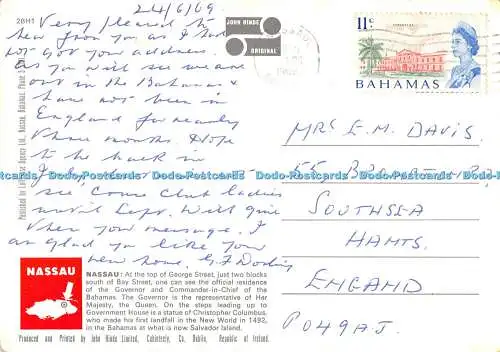 2BH1
24/6/69
Very pleased to
hear from you as I had
not got your address.
As you will see we are
out in the Bahamas &
have not been in
England for nearly
three months. Hope
to be back in
July
see Club ladies
until Sept. Will give
them your message. I
am glad you like your
new home.
JOHN HINDE
ORIGINAL
11c
BAHAMAS
MRS E. M. DAVIS
55
SOUTHSEA
HANTS.
ENGLAND
PO49AJ.
Dodo-Postcards Dodo-Postcards Dodo-Postcards Dodo-Postcards Dodo-Postcards
NASSAU
NASSAU: At the top of George Street, just two blocks
south of Bay Street, one can see the official residence
of the Governor and Commander-in-Chief of the
Bahamas. The Governor is the representative of Her
Majesty, the Queen. On the steps leading up to
Government House is a statue of Christopher Columbus,
who made his first landfall in the New World in 1492,
in the Bahamas at what is now Salvador Island.
Produced and Printed by John Hinde Limited, Cabinteely, Co. Dublin, Republic of Ireland.